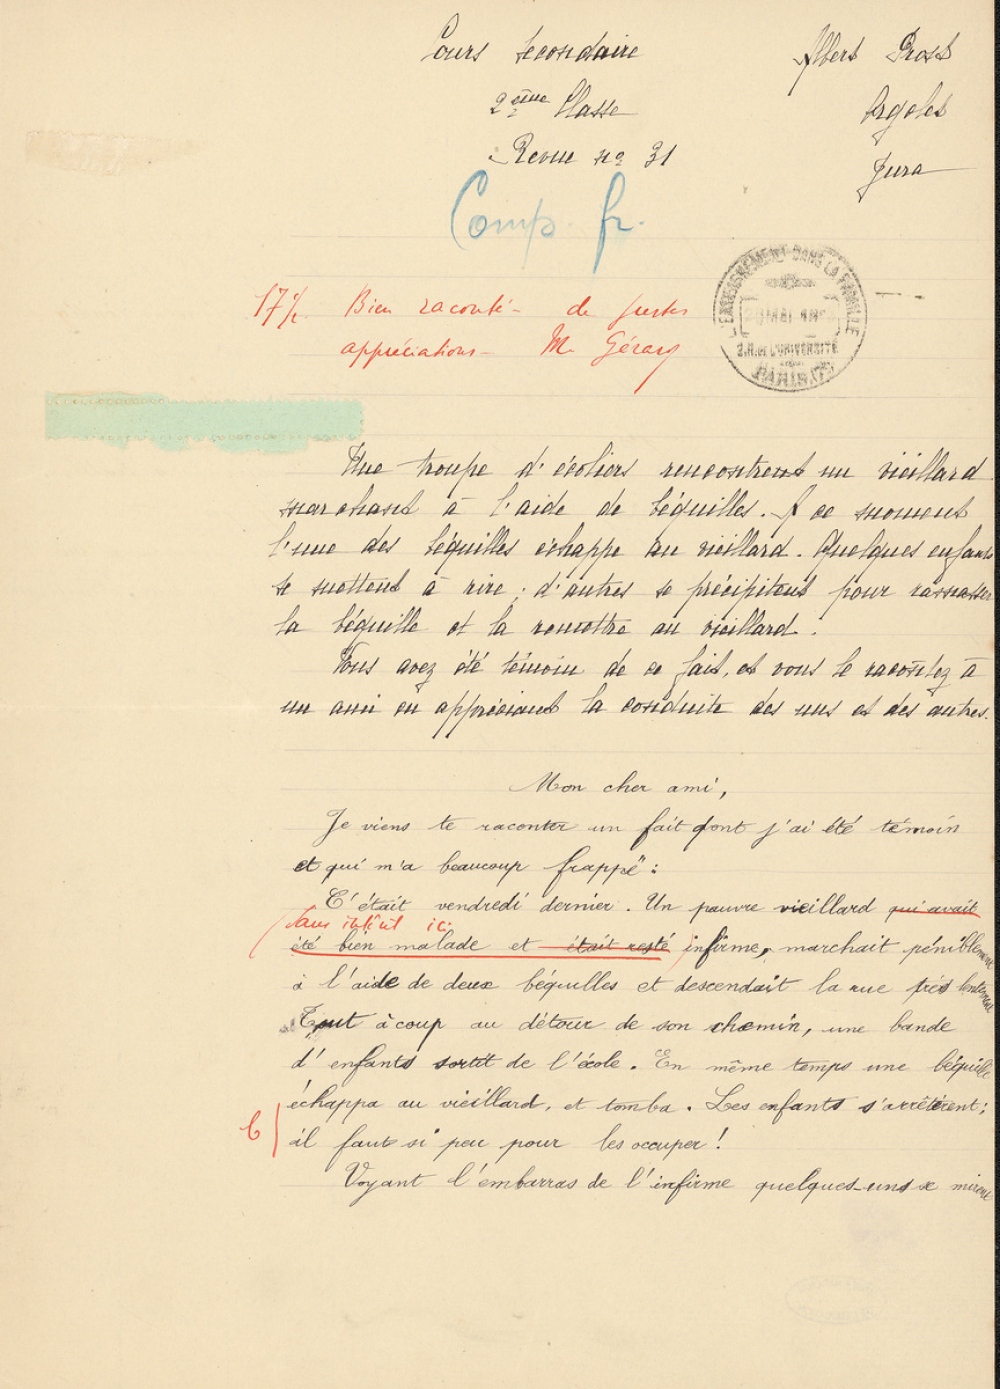 Cours secondaire
2ème Classe
Revue no 31
Albert Prost
Orgelet
Jura
Comp. fr.
17 1/2 Bien raconté - de justes
appréciations - M. Gérard
L'ENSEIGNEMENT DANS LA FAMILLE
MAI
2.R. DE L'UNIVERSITÉ
PARIS
Une troupe d'écoliers rencontrent un vieillard
marchant à l'aide de béquilles. A ce moment
l'une des béquilles échappe au vieillard. Quelques enfants
se mettent à rire ; d'autres se précipitent pour ramasser
la béquille et la remettre au vieillard.
Vous avez été témoin de ce fait, et vous le racontez à
un ami en appréciant la conduite des uns et des autres.
Mon cher ami,
Je viens te raconter un fait dont j'ai été témoin
et qui m'a beaucoup frappé :
C'était vendredi dernier. Un pauvre vieillard qui avait
sans intérêt ici
été bien malade et était resté infirme, marchait péniblement
à l'aide de deux béquilles et descendait la rue très lentement
Tout à coup au détour de son chemin, une bande
d'enfants sortit de l'école. En même temps une béquille
échappa au vieillard, et tomba. Les enfants s'arrêtèrent ;
b
il faut si peu pour les occuper !
Voyant l'embarras de l'infirme quelques-uns se mirent